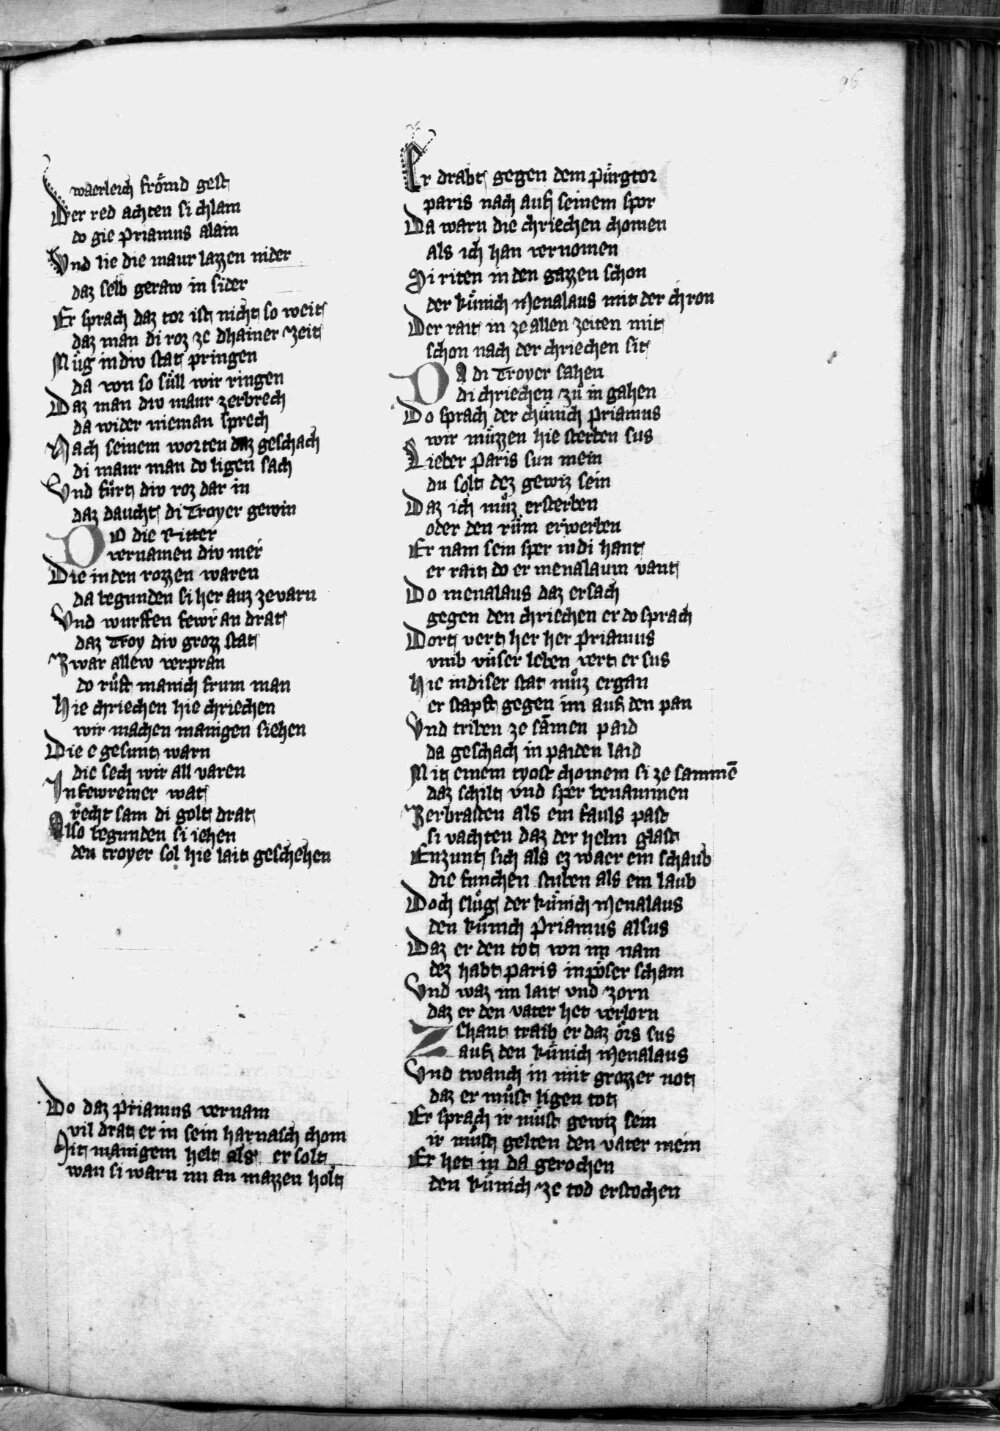 96
Swaerleich froͤmd gest
Der red achten si chlam
do gie Priamus alain
Vnd lie die maur lazzen nider
daz selb geraw in sider
Er sprach daz tor ist nicht so weit
daz man di roz ze dhainer zeit
Muͤg in diw stat pringen
da von so suͤll wir ringen
Daz man diw maur zerbrech
da wider nieman sprech
Nach seinem worten daz geschach
di maur man do ligen sach
Vnd fuͤrt diw roz dar in
daz daucht di Troyer gewin
DO die Ritter
vernamen diw mer
Die in den rozzen waren
da begunden si her auz zevarn
Vnd wurffen fewr an drat
daz Troy diw grozz stat
Zwar allew verpran
do ruͤft manich frum man
Hie chriechen hie chriechen
wir machen manigen siehen
Die e gesunt warn
die sech wir all varen
In fewreiner wat
recht sam di golt drat
Also begunden si iehen
den troyer sol hie lait geschehen
Do daz Priamus vernam
vil drat er in sein harnasch chom
Mit manigem helt als er solt
wan si warn im an mazzen holt
Er drabt gegen dem Puͤrgtor
paris nach auf seinem spor
Da warn die chriechen chomen
als ich han vernomen
Si riten in den gazzen schon
der kuͤnich Menalaus mit der chron
Der rait in ze allen zeiten mit
schon nach der chriechen sit
DA di Troyer sahen
di chriechen zuͤ in gahen
Do sprach der chuͤnich Priamus
wir muͤzzen hie sterben sus
Lieber Paris sun mein
du solt dez gewiz sein
Daz ich muͦz ersterben
oder den ruͦm erwerben
Er nam sein sper in di hant
er rait do er menalaum vant
Do menalaus daz ersach
gegen den chriechen er do sprach
Dort vert her her Priamus
vmb vnser leben vert er sus
Hie in diser stat muͦz ergan
er stapft gegen im auf den pan
Vnd triben ze samen paid
da geschach in paiden laid
Mit einem tyost chomem si ze samme̅
daz schilt vnd sper benammen
Zerbrasten als ein fauls past
si vachten daz der helm glast
Enzunt sich als ez waer ein schaub
die funchen stuben als ein laub
Doch sluͦg der kuͤnich Menalaus
den kuͤnich Priamus alsus
Daz er den tot von im nam
dez habt paris in poͤser scham
Vnd waz im lait vnd zorn
daz er den vater het verlorn
Zehant traib er daz oͤrs sus
auf den kuͤnich Menalaus
Vnd twanch in mit grozzer not
daz er muͤst ligen tot
Er sprach ir muͤst gewiz sein
ir muͤst gelten den vater mein
Er het in da gerochen
den kuͤnich ze tod erstochen